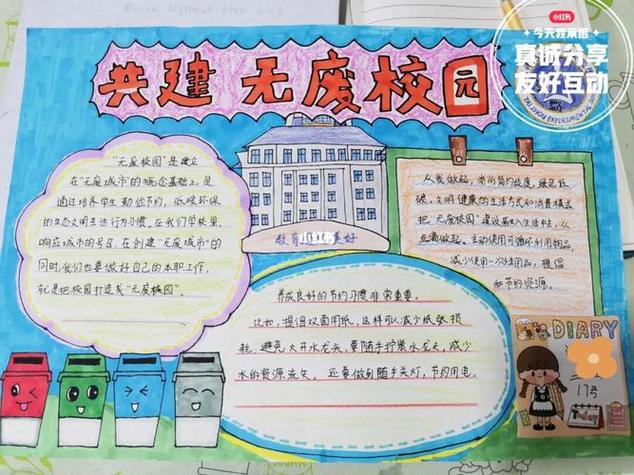 小红书
今天我承诺
真诚分享
友好互动
共建 无废校园
TAIZHOU EXPERIMENTAL
"无废校园"是建立
在"无废城市"的概念基础上,是
通过培养学生勤俭节约,低碳环保
的生态文明生活行为习惯。在我们学校里,
响应城市的号召,在创建"无废城市"的
同时,我们也要做好自己的本职工作,
就是把校园打造成"无废校园"。
教育 小红书 美好
从我做起,崇尚简约适度,绿色低
碳,文明健康的生活方式和消费模式
把"无废校园"建设融入生活中去,从
点滴做起。主动使用可循环利用物品,
减少使用一次性用品,提倡
和节约资源。
养成良好的节约习惯非常重要。
比如,提倡双面用纸,这样可以减少纸张损
耗。避免大开水龙头,要随手拧紧水龙头,减少
水的资源流失。还要做到随手关灯,节约用电。
DIARY
17号
Today